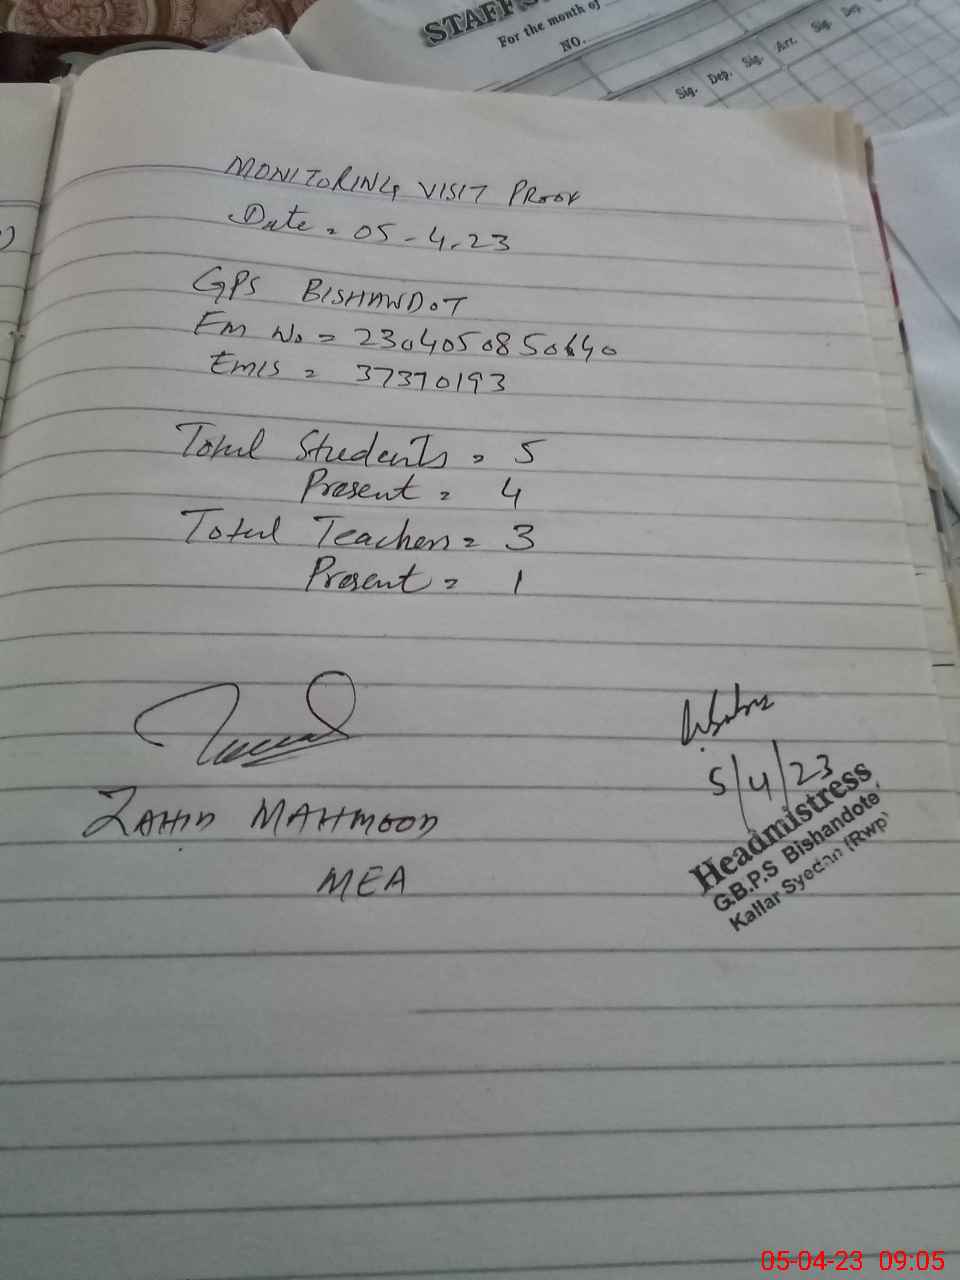 STAFF
For the month of
NO.
Sig. Dep. Sig. Arr. Sig. Dep.
MONITORING VISIT PROOF
Date = 05-4-23
GPS BISHANDOT
Em No = 230405085
EMIS = 37370193
Total Students = 5
Present = 4
Total Teachers = 3
Present = 1
ZAHID MAHMOOD
MEA
5/4/23
Headmistress
G.B.P.S Bishandote
Kallar Syedan (Rwp)
05-04-23 09:05